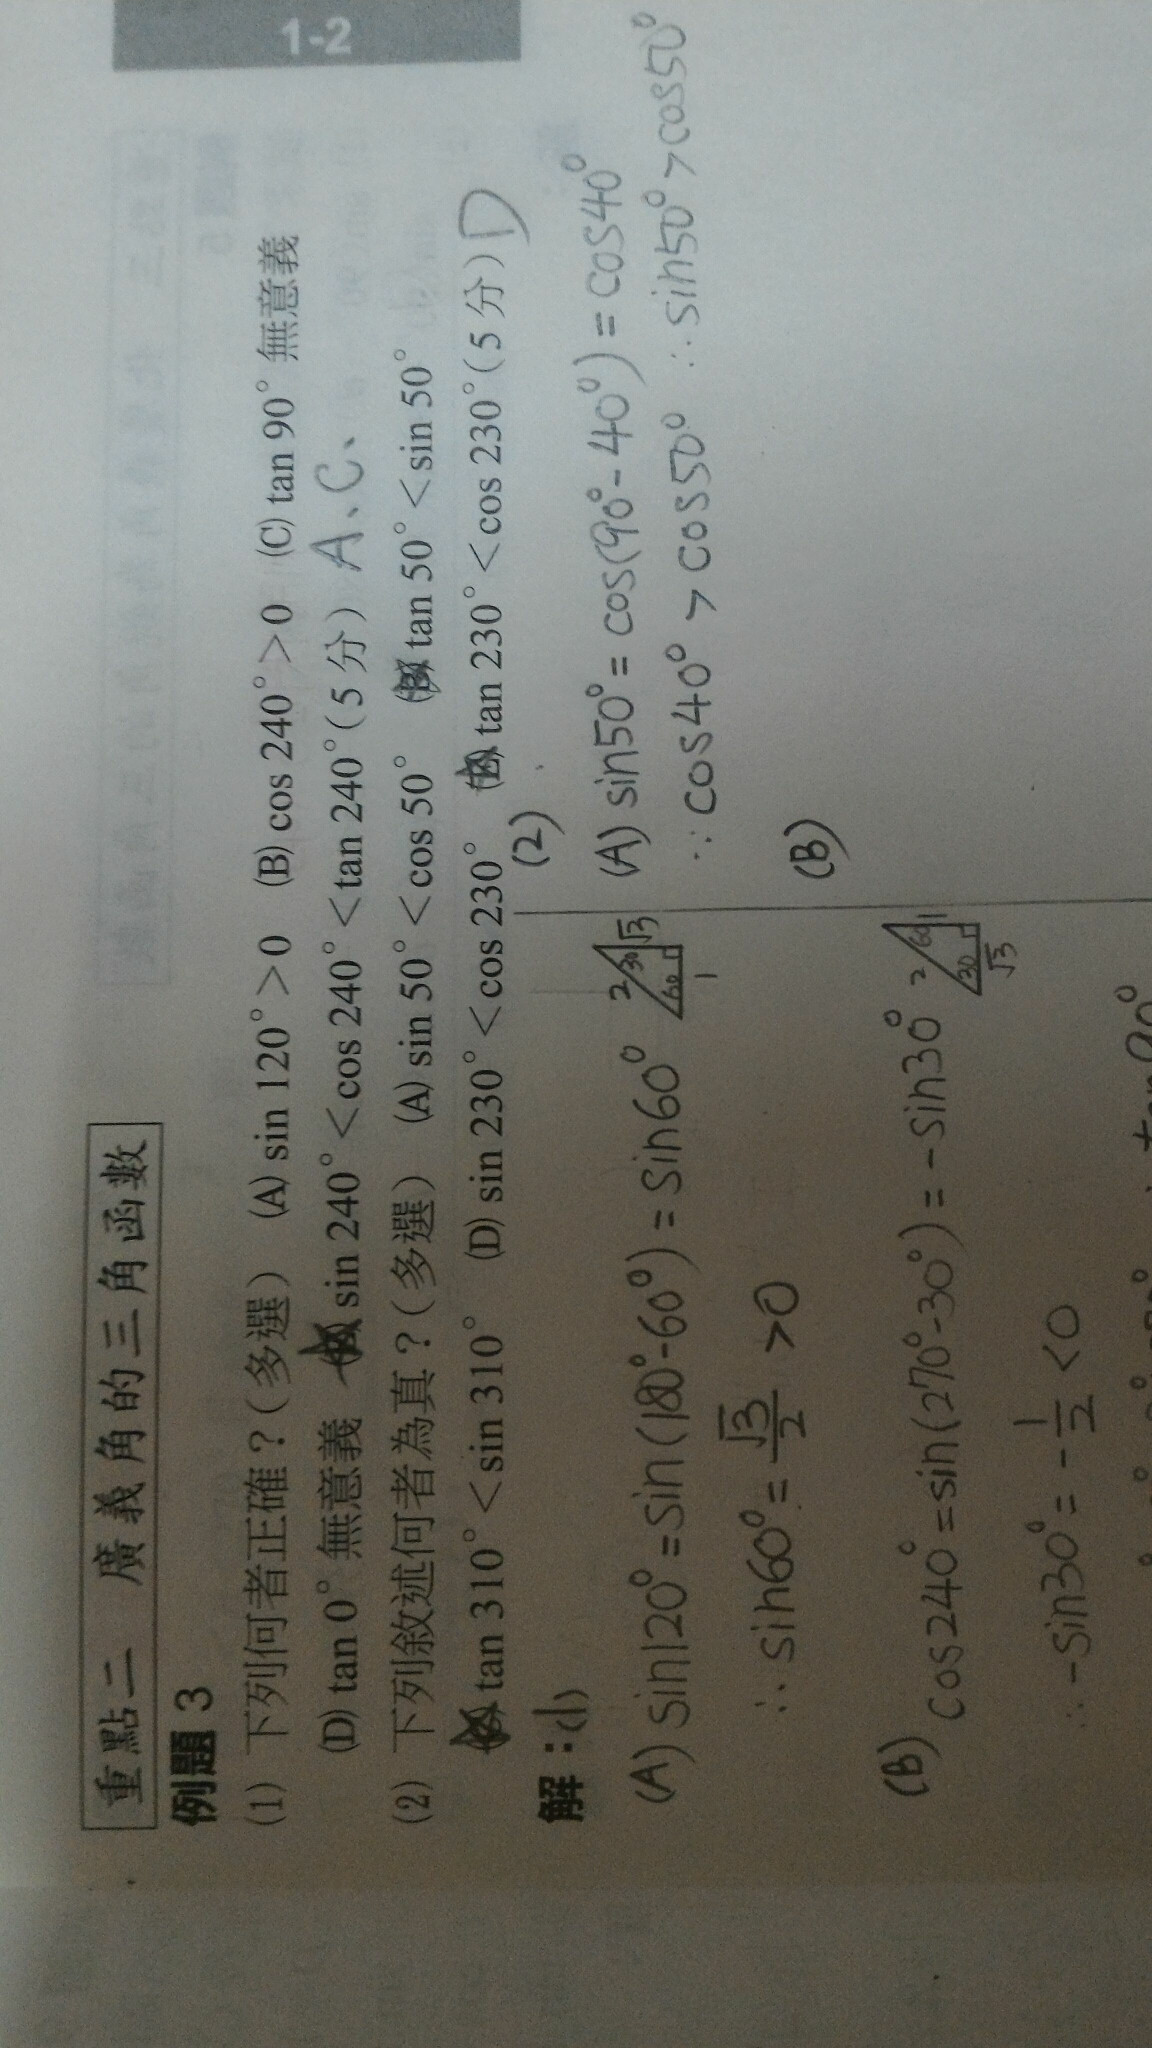 1-2
重點二 廣義角的三角函數
例題 3
(1) 下列何者正確？(多選) (A) sin 120°>0 (B) cos 240°>0 (C) tan 90° 無意義
(D) tan 0° 無意義 sin 240°<cos 240°<tan 240°(5 分) A、C、
(2) 下列敘述何者為真？(多選) (A) sin 50°<cos 50° tan 50°<sin 50°
tan 310°<sin 310° (D) sin 230°<cos 230° tan 230°<cos 230°(5 分) D
解：(1)
(A) sin120°=sin(180°-60°)=sin60° 2 30 √3 60 1
∴ sin60°=√3/2 >0
(B) cos240°=sin(270°-30°)=-sin30° 2 60 1 30 √3
∴ -sin30°=-1/2 <0
tan90°
(2)
(A) sin50°=cos(90°-40°)=cos40°
∵ cos40°>cos50° ∴ sin50°>cos50°
(B)